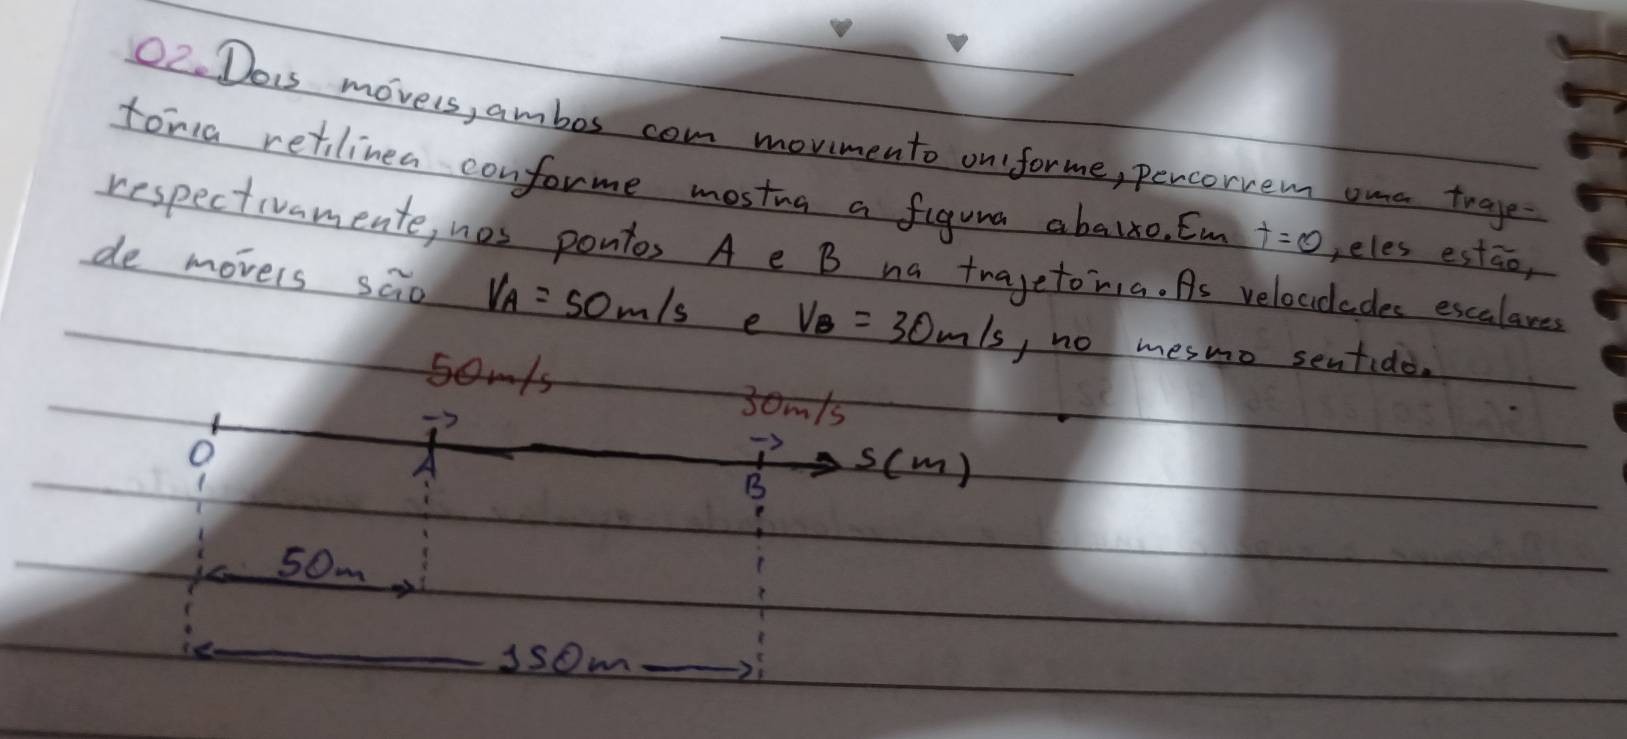 02. Dois móveis, ambos com movimento uniforme, percorrem uma traje-
tória retilínea conforme mostra a figura abaixo. Em t=0, eles estão,
respectivamente, nos pontos A e B na trajetória. As velocidades escalares
de móveis são VA = 50m/s e VB = 30m/s, no mesmo sentido.
50m/s 30m/s
O A B S(m)
50m
150m